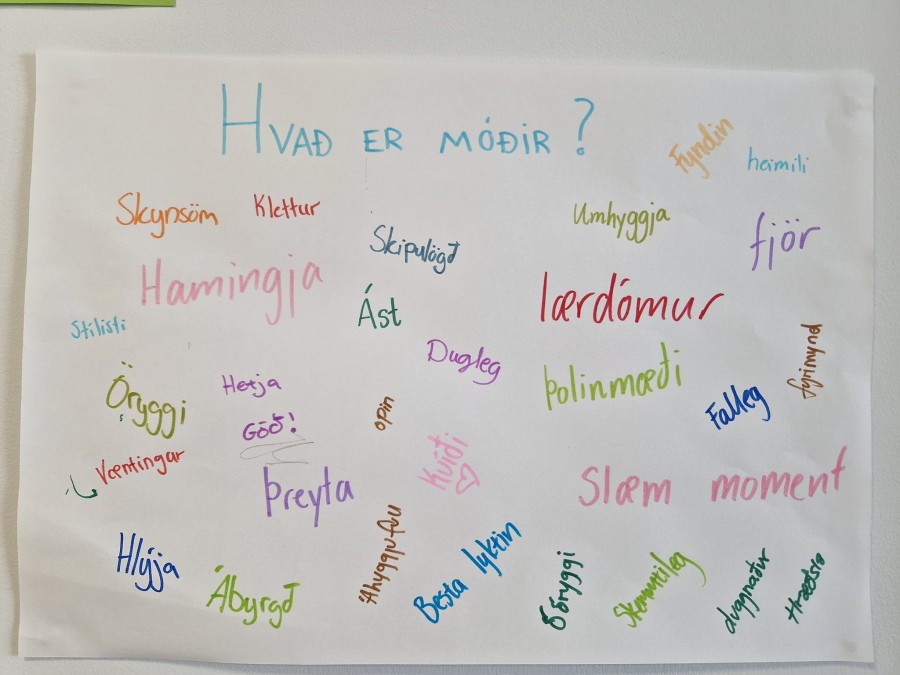 HVAÐ ER MÓÐIR?
Fyndin
heimili
Skynsöm
Klettur
Umhyggja
Skipulögð
fjör
Hamingja
Ást
lærdómur
Stilisti
Dugleg
fyrimynd
Öryggi
Hetja
þolinmæði
Falleg
opin
GÓÐ!
Kvíði
Væntingar
Þreyta
Slæm moment
Hlýja
Ábyrgð
Besta lyktin
Óöryggi
Skemmtileg
dugnaður